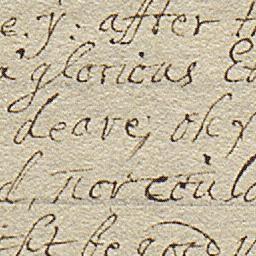 e. y: affter th
a glorious E
deare; oh y
d, nor could
ist be good